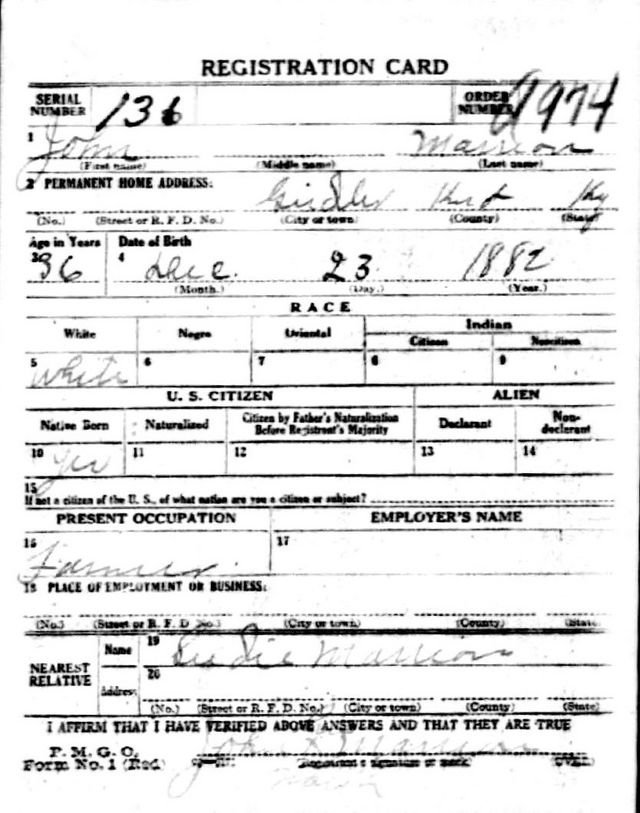 REGISTRATION CARD
SERIAL NUMBER 136 ORDER NUMBER 974
1 John Marrion
(First name) (Middle name) (Last name)
2 PERMANENT HOME ADDRESS:
Girdler Knox Ky
(No.) (Street or R. F. D. No.) (City or town) (County) (State)
Age in Years Date of Birth
3 36 4 Dec 23 1882
(Month.) (Day.) (Year.)
RACE
White Negro Oriental Indian
Citizen Noncitizen
5 White 6 7 8 9
U. S. CITIZEN ALIEN
Native Born Naturalized Citizen by Father's Naturalization Before Registrant's Majority Declarant Non-declarant
10 Yes 11 12 13 14
15
If not a citizen of the U. S., of what nation are you a citizen or subject?
PRESENT OCCUPATION EMPLOYER'S NAME
16 Farmer 17
18 PLACE OF EMPLOYMENT OR BUSINESS:
(No.) (Street or R. F. D. No.) (City or town) (County) (State)
NEAREST RELATIVE Name 19 Marrion
Address 20
(No.) (Street or R. F. D. No.) (City or town) (County) (State)
I AFFIRM THAT I HAVE VERIFIED ABOVE ANSWERS AND THAT THEY ARE TRUE
P. M. G. O.
Form No. 1 (Red) John Marrion
(Registrant's signature or mark) (OVER)